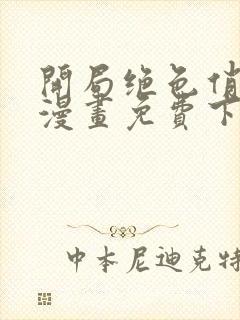 開局绝色俏
漫畫免費下
中本尼迪克特